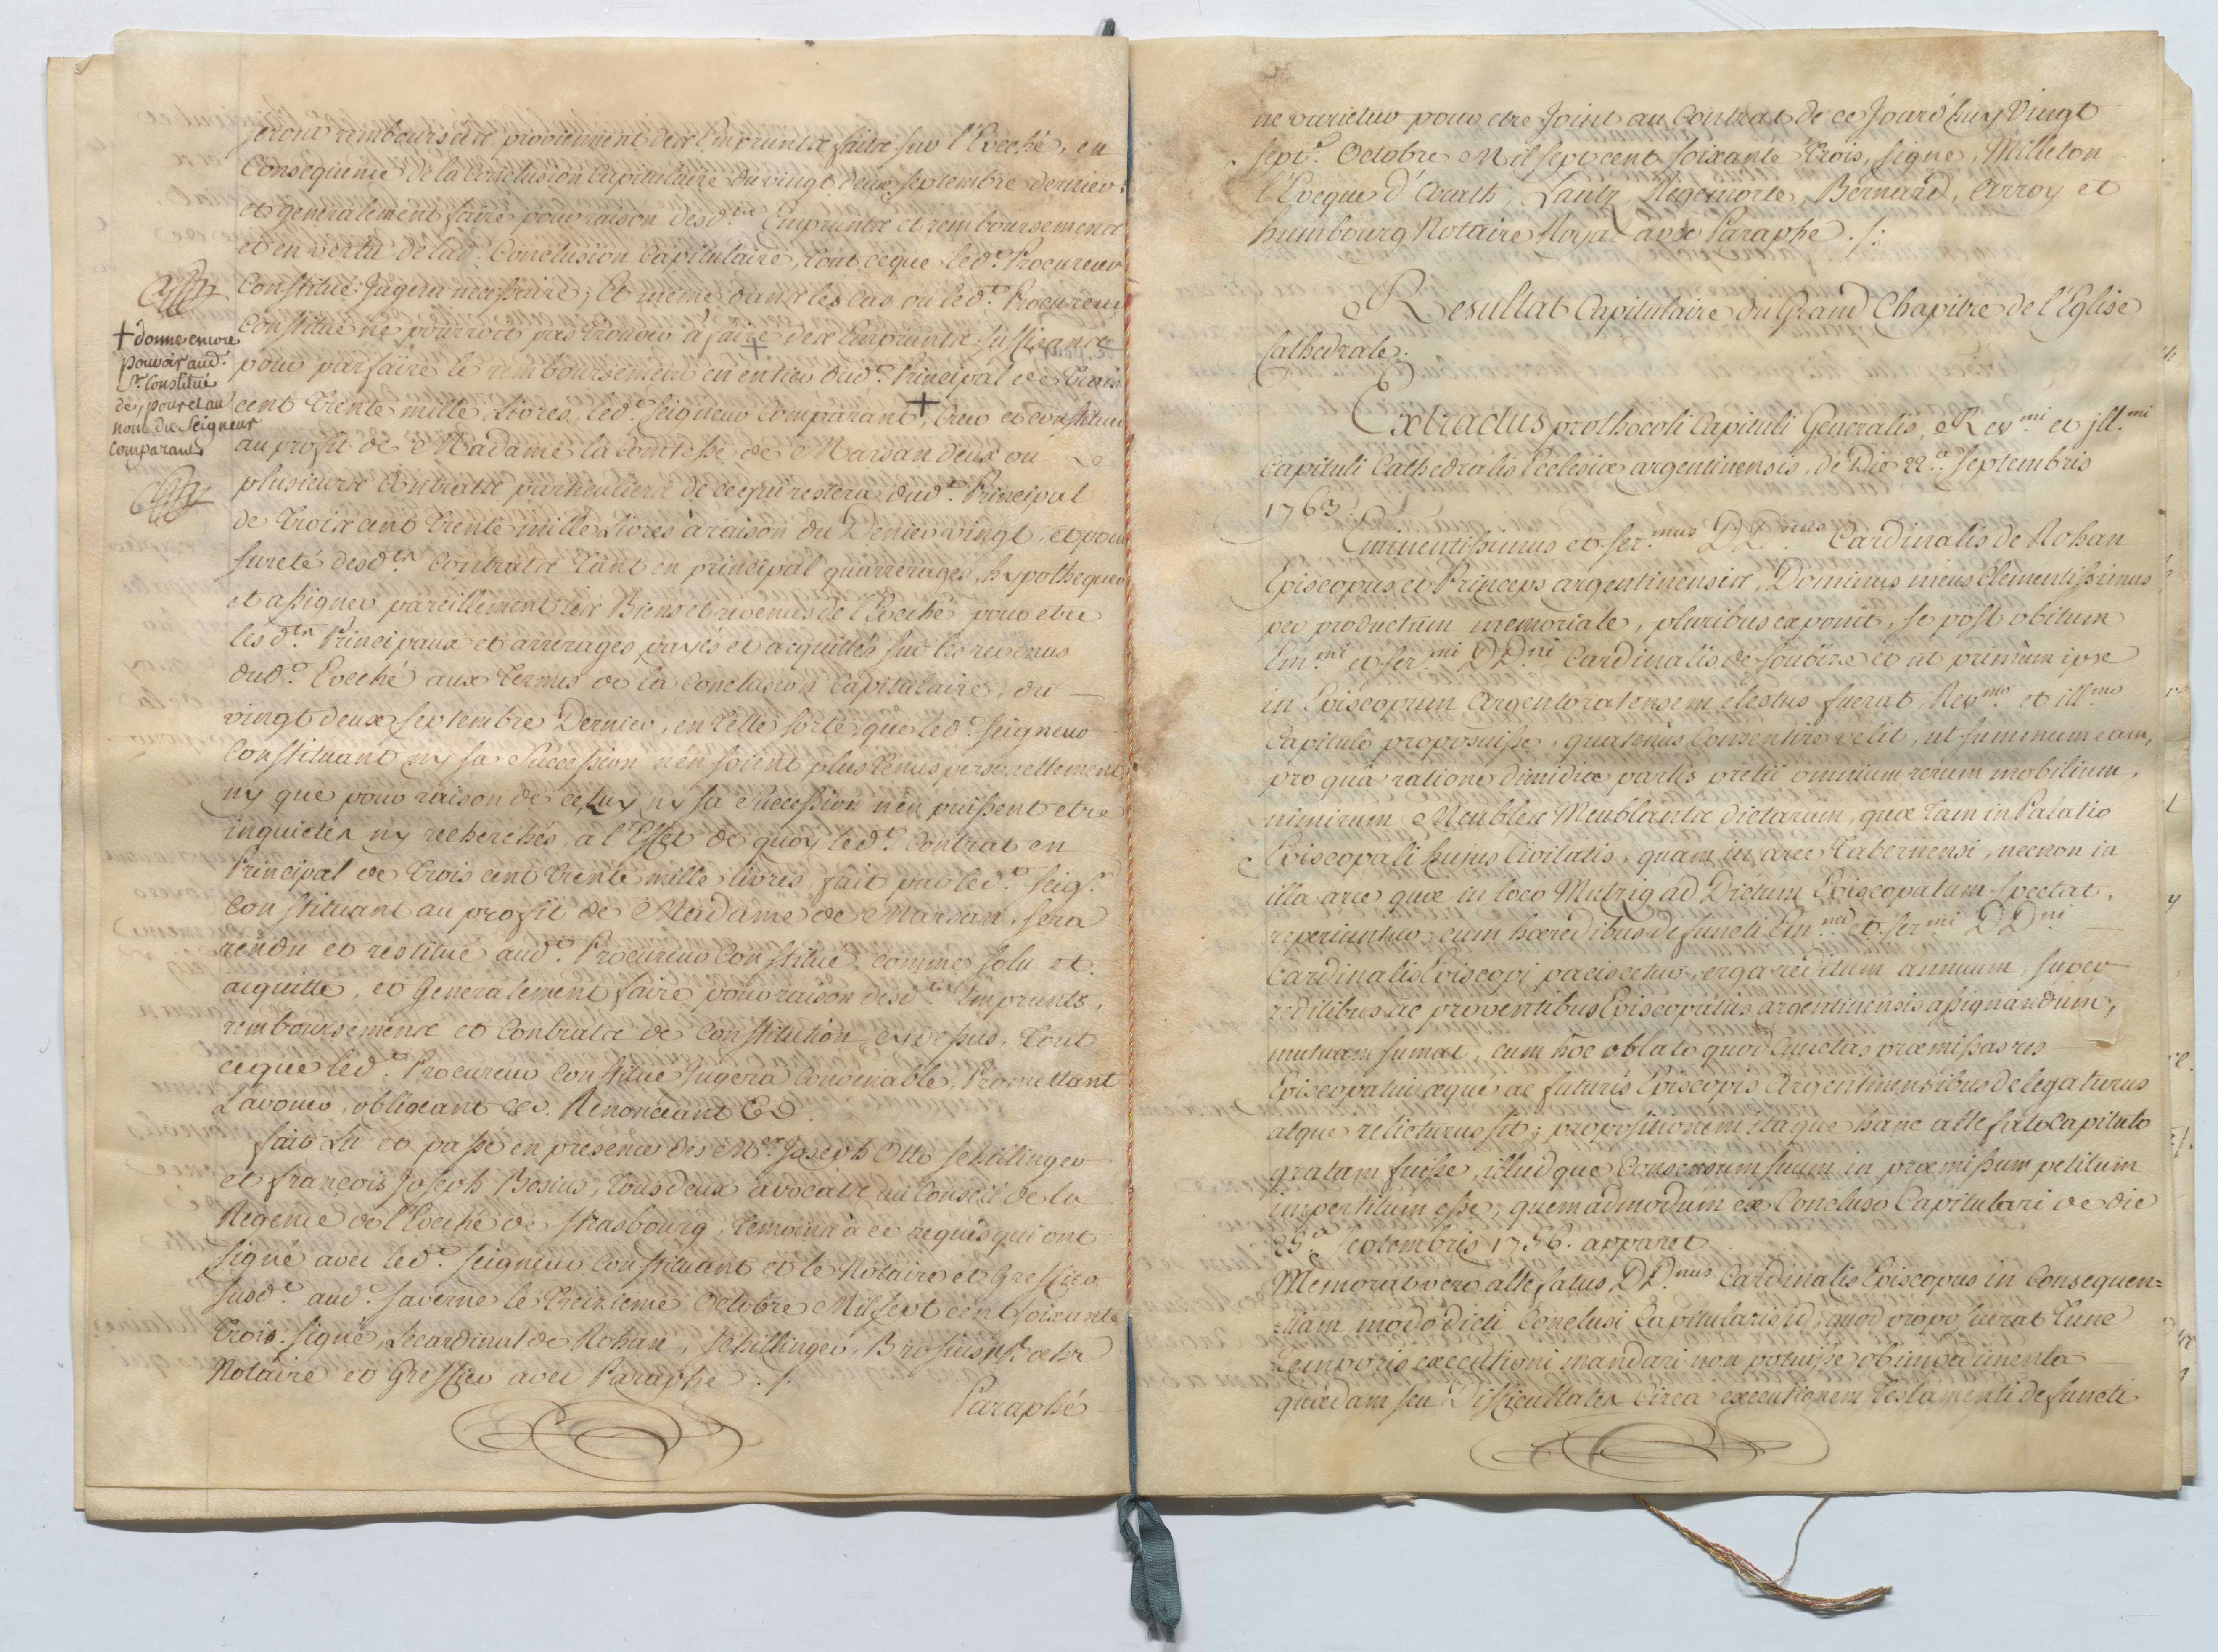 seront remboursées proviennent des Emprunts faits sur l'Eveché, en
Consequence de la Conclusion Capitulaire du vingt deux septembre dernier
et generalement faire pour raison desd.ts Emprunts et remboursements
et en vertu de lad.e Conclusion Capitulaire, tout ce que led.t Procureur
Constitué Jugera necessaire; Et même dans les cas ou led.t Procureur
Constitué ne pourroit pas trouver à faire des Emprunts suffisants
pour parfaire le remboursement en entier dud.t Principal de trois
cent trente mille Livres, led.t Seigneur Comparant + Créer et constituer
au profit de Madame la Comtesse de Marsan deux ou
plusieurs Contrats particuliers de ce qui restera dud.t Principal
de trois cent trente mille Livres à raison du Denier vingt, et pour
sureté desd.ts Contrats tant en principal qu'arrerages, hypothequer
et assigner pareillement les Biens et revenus de l'Eveché pour etre
lesd.ts Principaux et arrerages payés et acquittés sur les revenus
dud.t Eveché aux termes de la Conclusion Capitulaire, du
vingt deux septembre Dernier, en telle sorte que led.t Seigneur
Constituant ny sa Succession n'en soient plus tenus personellement
ny que pour raison de ce, luy ny sa Succession n'en puissent etre
inquietés ny recherchés, a l'Effet de quoy led.t Contrat en
Principal de trois cent trente mille livres fait par led.t Seig.r
Constituant au profit de Madame de Marsan, sera
rendu et restitué aud.t Procureur Constitué, comme solu et
acquitté, et Generalement faire pour raison desd.ts Emprunts,
remboursements et Contrats de Constitution cy dessus, tout
ce que led.t Procureur Constitué Jugera Convenable, Promettant
L'avouer, obligeant &c. Renonceant &c.
fait Lu et passé en presence des M.rs Joseph Otto Schillinger
et françois Joseph Bosius, tous deux avocats au Conseil de la
Regence de l'Eveché de Strasbourg, temoins à ce requis qui ont
signé avec led.t Seigneur Constituant et le Notaire et Greffier
susd.t aud.t Saverne le treizieme Octobre Mil sept cent soixante
trois. signé, Le Cardinal de Rohan, Schillinger,
Notaire et Greffier avec Paraphe ./.
Paraphé
+ donne encore
pouvoir aud.t
S.r Constitué
de, pour et au
nom du Seigneur
Comparant
ne varietur pour etre Joint au Contrat de ce Jourd'huy Vingt
sept.e Octobre Mil sept cent soixante trois, signé, Milleton
l'Eveque d'Arath, Lantz, Regemorte, Bernard, Arroy et
humbourg Notaire Royal avec Paraphe ./:
Resultat Capitulaire du Grand Chapitre de l'Eglise
Cathedrale.
Extractus prothocoli Capituli Generalis, Rev.mi et jll.mi
Capituli Cathedralis Ecclesiæ argentinensis, de Die 22.a Septembris
1763.
Eminentissimus et Ser.mus DD.nus Cardinalis de Rohan
Episcopus et Princeps argentinensis, Dominus meus Clementissimus
per productum memoriale, pluribus exponit, se post obitum
Em.mi et Ser.mi DD.ni Cardinalis de Soubize et ut primum ipse
in Episcopum Argentoratensem electus fuerat, Rev.mo et ill.mo
Capitulo proposuisse, quatenus Consentire velit, ut summum eam,
pro quâ ratione dimidiæ partis pretii omnium rerum mobilium,
nimirum Meubles Meublants dictarum, quæ tam in Palatio
Episcopali hujus Civitatis, quam in arce Tabernensi, necnon in
illa arce quæ in loco Mutzig ad Dictum Episcopatum spectat,
reperiuntur, cum hæredibus defuncti Em.mi et Ser.mi DD.ni
Cardinalis Episcopi paciscetur, erga reditum annuum, super
reditibus ac proventibus Episcopatus argentinensis assignandum,
mutuam sumat, cum hoc oblato quod Cunctas præmissas res
Episcopatui æque ac futuris Episcopis Argentinensibus delegaturus
atque relicturus sit; propositionem itaque hanc alte fato Capitulo
gratam fuisse, illudque Consensum suum in præmissum petitum
impertitum esse, quemadmodum ex Concluso Capitulari de die
25.a Septembris 1756. apparet.
Memorat vero alte fatus DD.nus Cardinalis Episcopus in Consequen=
=tiam modo dicti Conclusi Capitularis id, quod proposuerat tunc
temporis executioni mandari non potuisse, ob impedimenta
quædam seu Difficultates circa executionem testamenti defuncti